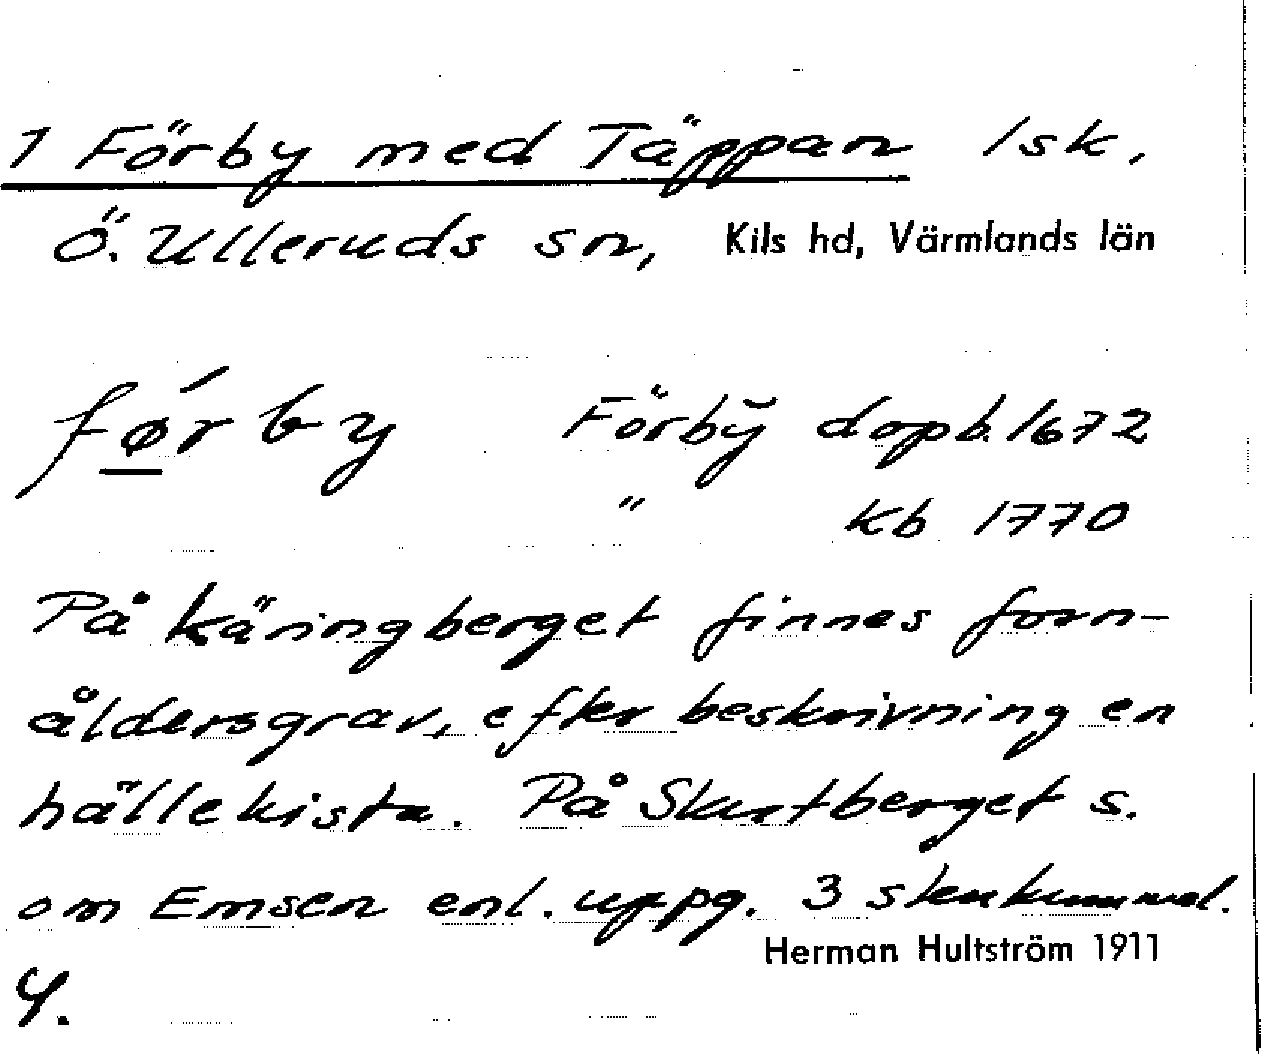 1 Förby med Täppan 1sk,
Ö. Ulleruds sn, Kils hd, Värmlands län
fø̲ŕby Förbÿ dopb. 1672
" Kb 1770
På Käringberget finnes forn-
åldersgrav, efter beskrivning en
hällekista. På Slustberget s.
om Emsen enl. uppg. 3 stenkummel.
Herman Hultström 1911
4.